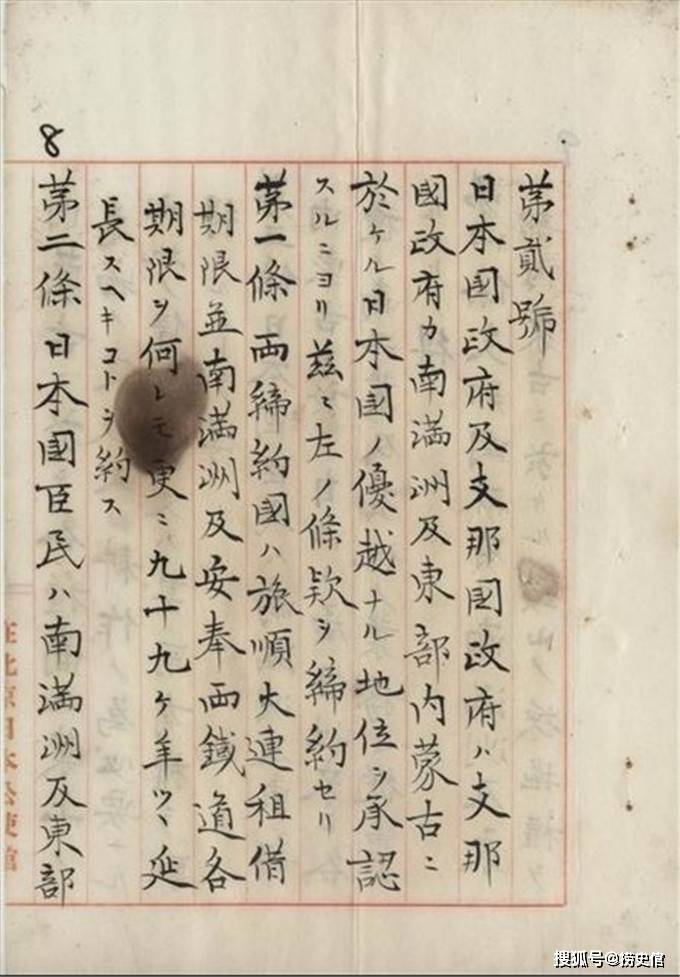 8
第貳號
日本國政府及支那國政府ハ支那
國政府カ南滿洲及東部内蒙古ニ
於ケル日本國ノ優越ナル地位ヲ承認
スルニヨリ茲ニ左ノ條款ヲ締約セリ
第一條 両締約國ハ旅順大連租借
期限並南滿洲及安奉両鐵道各
期限ヲ何レモ更ニ九十九ケ年ツヽ延
長スヘキコトヲ約ス
第二條 日本國臣民ハ南滿洲及東部
在北京日本公使館
搜狐号@捞史馆